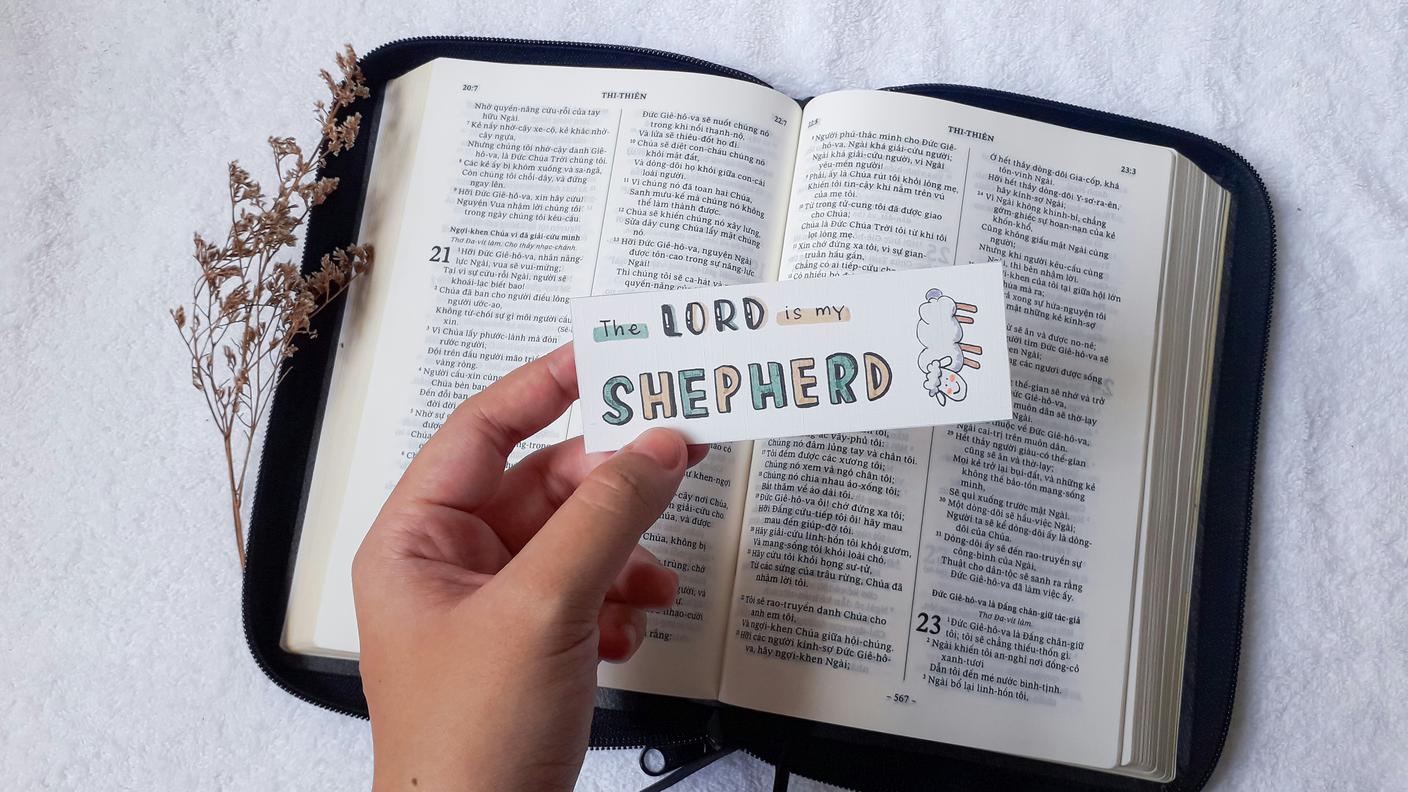 20:7
THI-THIÊN
22:7
Nhờ quyền-năng cứu-rỗi của tay
hữu Ngài.
7 Kẻ nầy nhờ-cậy xe-cộ, kẻ khác nhờ-
cậy ngựa,
Nhưng chúng tôi nhờ-cậy danh Giê-
hô-va, là Đức Chúa Trời chúng tôi.
8 Các kẻ ấy bị khòm xuống và sa-ngã,
Còn chúng tôi chổi-dậy, và đứng
ngay lên.
9 Hỡi Đức Giê-hô-va, xin hãy cứu!
Nguyện Vua nhậm lời chúng tôi
trong ngày chúng tôi kêu-cầu.
Ngợi-khen Chúa vì đã giải-cứu mình
Thơ Đa-vít làm. Cho thầy nhạc-chánh.
21
1 Hỡi Đức Giê-hô-va, nhân năng-
lực Ngài, vua sẽ vui-mừng;
Tại vì sự cứu-rỗi Ngài, người sẽ
khoái-lạc biết bao!
2 Chúa đã ban cho người điều lòng
người ước-ao,
Không từ-chối sự gì môi người cầu
xin.
3 Vì Chúa lấy phước-lành mà đón
rước người;
Đội trên đầu người mão triều
vàng ròng.
4 Người cầu-xin cùng
Chúa bèn ban
Đến đỗi ban
đời đời
Đức Giê-hô-va sẽ nuốt chúng nó
trong khi nổi thạnh-nộ,
Và lửa sẽ thiêu-đốt họ đi.
10 Chúa sẽ diệt con-cháu chúng nó
khỏi mặt đất,
Và dòng-dõi họ khỏi giữa con-cái
loài người.
11 Vì chúng nó đã toan hại Chúa,
Sanh mưu-kế mà chúng nó không
thể làm thành được.
12 Chúa sẽ khiến chúng nó xây lưng,
Sửa dây cung Chúa lẩy mặt chúng
nó.
13 Hỡi Đức Giê-hô-va, nguyện Ngài
được tôn-cao trong sự năng-lực
Ngài!
Thì chúng tôi sẽ ca-hát và
quyền-năng
THI-THIÊN
23:3
9 Người phú-thác mình cho Đức Giê-
hô-va, Ngài khá giải-cứu người;
Ngài khá giải-cứu người, vì Ngài
yêu-mến người!
9 Phải, ấy là Chúa rút tôi khỏi lòng mẹ,
Khiến tôi tin-cậy khi nằm trên vú
của mẹ tôi.
10 Từ trong tử-cung tôi đã được giao
cho Chúa;
Chúa là Đức Chúa Trời tôi từ khi tôi
lọt lòng mẹ.
11 Xin chớ đứng xa tôi, vì sự gian-
truân hầu gần,
Chẳng có ai tiếp-cứu cho
The LORD is my
SHEPHERD
Chúng nó đâm lủng tay và chân tôi.
17 Tôi đếm được các xương tôi;
Chúng nó xem và ngó chân tôi;
18 Chúng nó chia nhau áo-xống tôi;
Bắt thăm về áo dài tôi.
19 Đức Giê-hô-va ôi! chớ đứng xa tôi;
Hỡi Đấng cứu-tiếp tôi ôi! hãy mau
mau đến giúp-đỡ tôi.
20 Hãy giải-cứu linh-hồn tôi khỏi gươm,
Và mạng-sống tôi khỏi loài chó,
21 Hãy cứu tôi khỏi họng sư-tử,
Từ các sừng của trâu rừng, Chúa đã
nhậm lời tôi.
22 Tôi sẽ rao-truyền danh Chúa cho
anh em tôi,
Và ngợi-khen Chúa giữa hội-chúng.
23 Hỡi các người kính-sợ Đức Giê-hô-
va, hãy ngợi-khen Ngài;
Ớ hết thảy dòng-dõi Gia-cốp, khá
tôn-vinh Ngài.
Hỡi hết thảy dòng-dõi Y-sơ-ra-ên,
hãy kính-sợ Ngài;
24 Vì Ngài không khinh-bỉ, chẳng
gớm-ghiếc sự hoạn-nạn của kẻ
khốn-khổ,
Cũng không giấu mặt Ngài cùng
người;
Nhưng khi người kêu-cầu cùng
Ngài, thì bèn nhậm lời.
khen của tôi tại giữa hội lớn
Chúa mà ra;
trả xong sự hứa-nguyện tôi
mặt những kẻ kính-sợ
sẽ ăn và được no-nê;
người tìm Đức Giê-hô-va sẽ
các ngươi được sống
thế-gian sẽ nhớ và trở
muôn dân sẽ thờ-lạy
thuộc về Đức Giê-hô-va,
Ngài cai-trị trên muôn dân.
29 Hết thảy người giàu-có thế-gian
cũng sẽ ăn và thờ-lạy;
Mọi kẻ trở lại bụi-đất, và những kẻ
không thế bảo-tồn mạng-sống
mình,
Sẽ quì xuống trước mặt Ngài.
30 Một dòng-dõi sẽ hầu-việc Ngài;
Người ta sẽ kể dòng-dõi ấy là dòng-
dõi của Chúa.
31 Dòng-dõi ấy sẽ đến rao-truyền sự
công-bình của Ngài,
Thuật cho dân-tộc sẽ sanh ra rằng
Đức Giê-hô-va đã làm việc ấy.
Đức Giê-hô-va là Đấng chăn-giữ tác-giả
Thơ Đa-vít làm.
23
1 Đức Giê-hô-va là Đấng chăn-giữ
tôi; tôi sẽ chẳng thiếu-thốn gì.
2 Ngài khiến tôi an-nghỉ nơi đồng-cỏ
xanh-tươi
Dẫn tôi đến mé nước bình-tịnh.
3 Ngài bổ lại linh-hồn tôi,
– 567 –